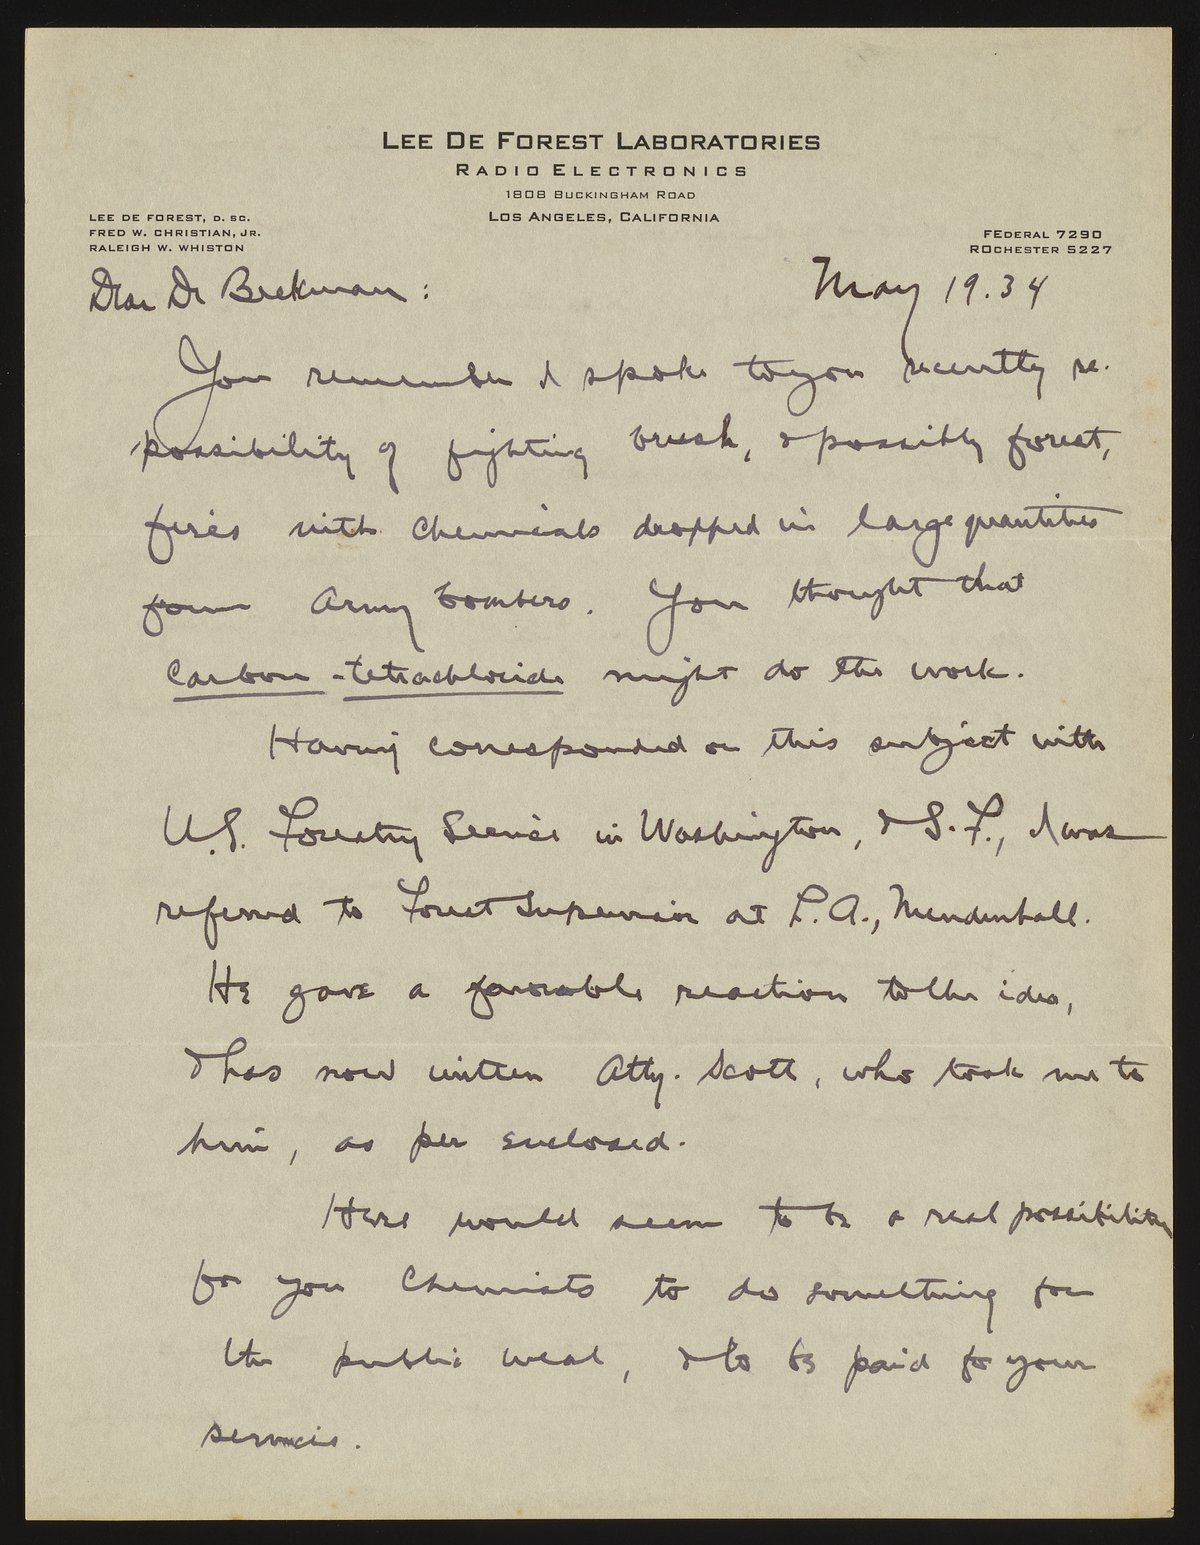 LEE DE FOREST LABORATORIES
RADIO ELECTRONICS
1808 BUCKINGHAM ROAD
LOS ANGELES, CALIFORNIA
LEE DE FOREST, D. SC.
FRED W. CHRISTIAN, JR.
RALEIGH W. WHISTON
FEDERAL 7290
ROCHESTER 5227
Dear Dr Beckman:
May 19. 34
You remember I spoke to you recently re.
possibility of fighting brush, & possibly forest,
fires with chemicals dropped in large quantities
from Army bombers. You thought that
Carbon-tetrachloride might do the work.
Having corresponded on this subject with
U.S. Forestry Service in Washington, & S.F., I was
referred to Forest Supervisor at L.A., Mendenhall.
He gave a favorable reaction to the idea,
& has now written Atty. Scott, who took me to
him, as per enclosed.
Here would seem to be a real possibility
for you Chemists to do something for
the public weal, & to be paid for your
services.